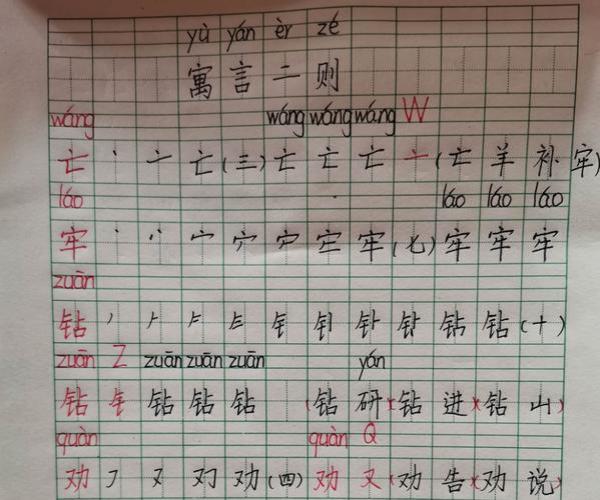 yù yán èr zé
寓言二则
wáng wáng wáng wáng W
亡 丶 亠 亡 (三) 亡 亡 亡 亠 (亡羊补牢)
láo láo láo láo
牢 (七) 牢 牢 牢
zuān
钻 钻 钻 (十)
zuān Z zuān zuān zuān yán
钻 钅 钻 钻 钻 (钻研)(钻进)(钻山)
quàn quàn Q
劝 ㇇ 又 劝 劝 (四) 劝 又 (劝告)(劝说)